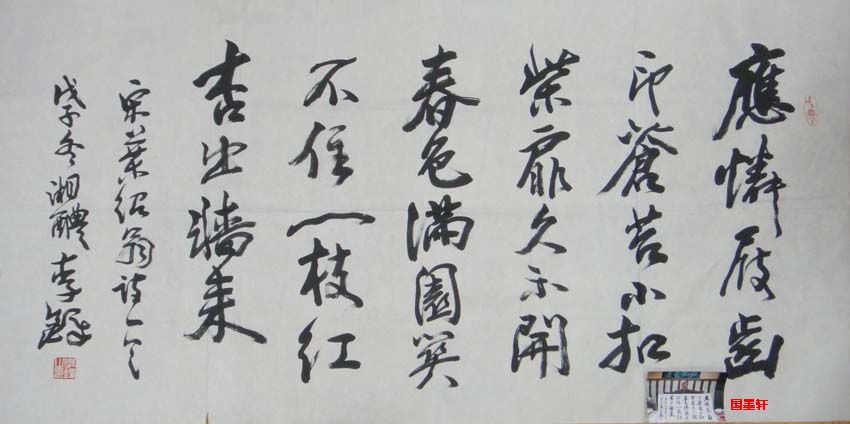 應憐屐齒
印蒼苔小扣
柴扉久不開
春色滿園關
不住一枝紅
杏出牆來
宋葉紹翁詩一首
戊子冬湘醴李鐸
国墨轩